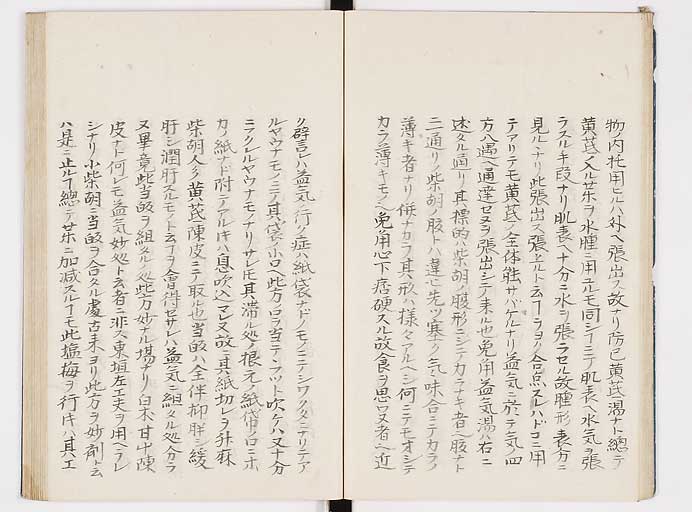 物ノ内托用ヒルハ外ヘ張出ス故ナリ防已黄芪湯ナド總テ
黄芪ノ入ル茶ヲ水腫ニ用ユルモ同シ「ニテ肌表ヘ水氣ヲ張
ラスルキ段ナリ肌表ヘ十分ニ水ヲ張ラセル故腫形表分ニ
見ルヽナリ此張出ス張上ルト云フヲヨク合点スレハドコニ用
テアリテモ黄芪ノ全体能サバケルナリ益氣ニ於テ氣ノ四
方八遇ヘ通達セヌヲ張出シテ来ル也免角益氣湯ハ右ニ
述タル通リ其標的ハ柴胡ノ腹形ニシテカラナキ者ヘ腹ナト
三通リノ柴胡ノ腹トハ違ヒ先ツ塞キノ氣味合ニテカラノ
薄キ者ナリ併ナカラ其形ハ様々アルヘシ何ニテモオシテ
カラ薄キモノヘ免角心下痞硬スル故食ヲ思ワヌ者ヘ近
ク辟言レハ益氣ノ行ク症ハ紙袋ナドノモノニテシワクタニナリテア
ルヤウナモノニテ其袋ノ小口ヘ此方ロヲ当テンフツト吹ケハ又十分
ニフクレルヤウナモノナリサレ𪜈其滞ル処ノ根元ノ紙袋ノ口ニホ
カノ紙ナド附テアルキハ息吹込マレヌ故ニ其紙切レヲ升麻
柴胡人参黄芪陳皮ニテ取ル也当皈ハ全体抑肝シ緩
肝シ潤肝スルモノト云フヲ會得セサレハ益氣ニ組タル処分ラ
ヌ畢竟此当皈ヲ組タル処此方妙ナル場ナリ白朮甘中陳
皮ナト何レモ益氣ノ妙処ト云者ニ非ス東垣左工夫ヲ用ヘラレ
シナリ小柴胡ニ当皈ヲ合タル處古来ヨリ此方ヲ妙剤ト云
ハ是ニ止ル「總テ茶ニ加減スル「モ此塩梅ヲ行ヘキ「其工